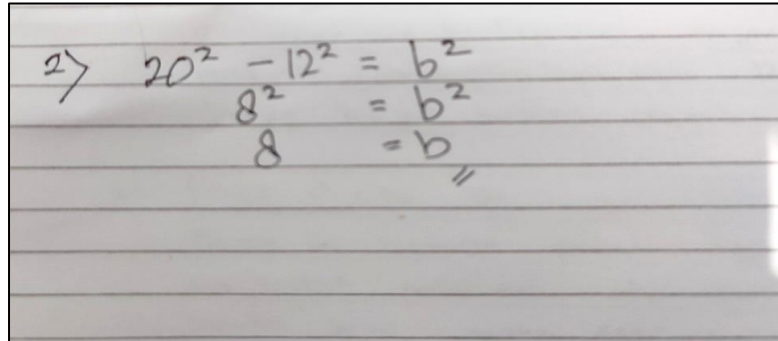 2) 20² - 12² = b²
8² = b²
8 = b